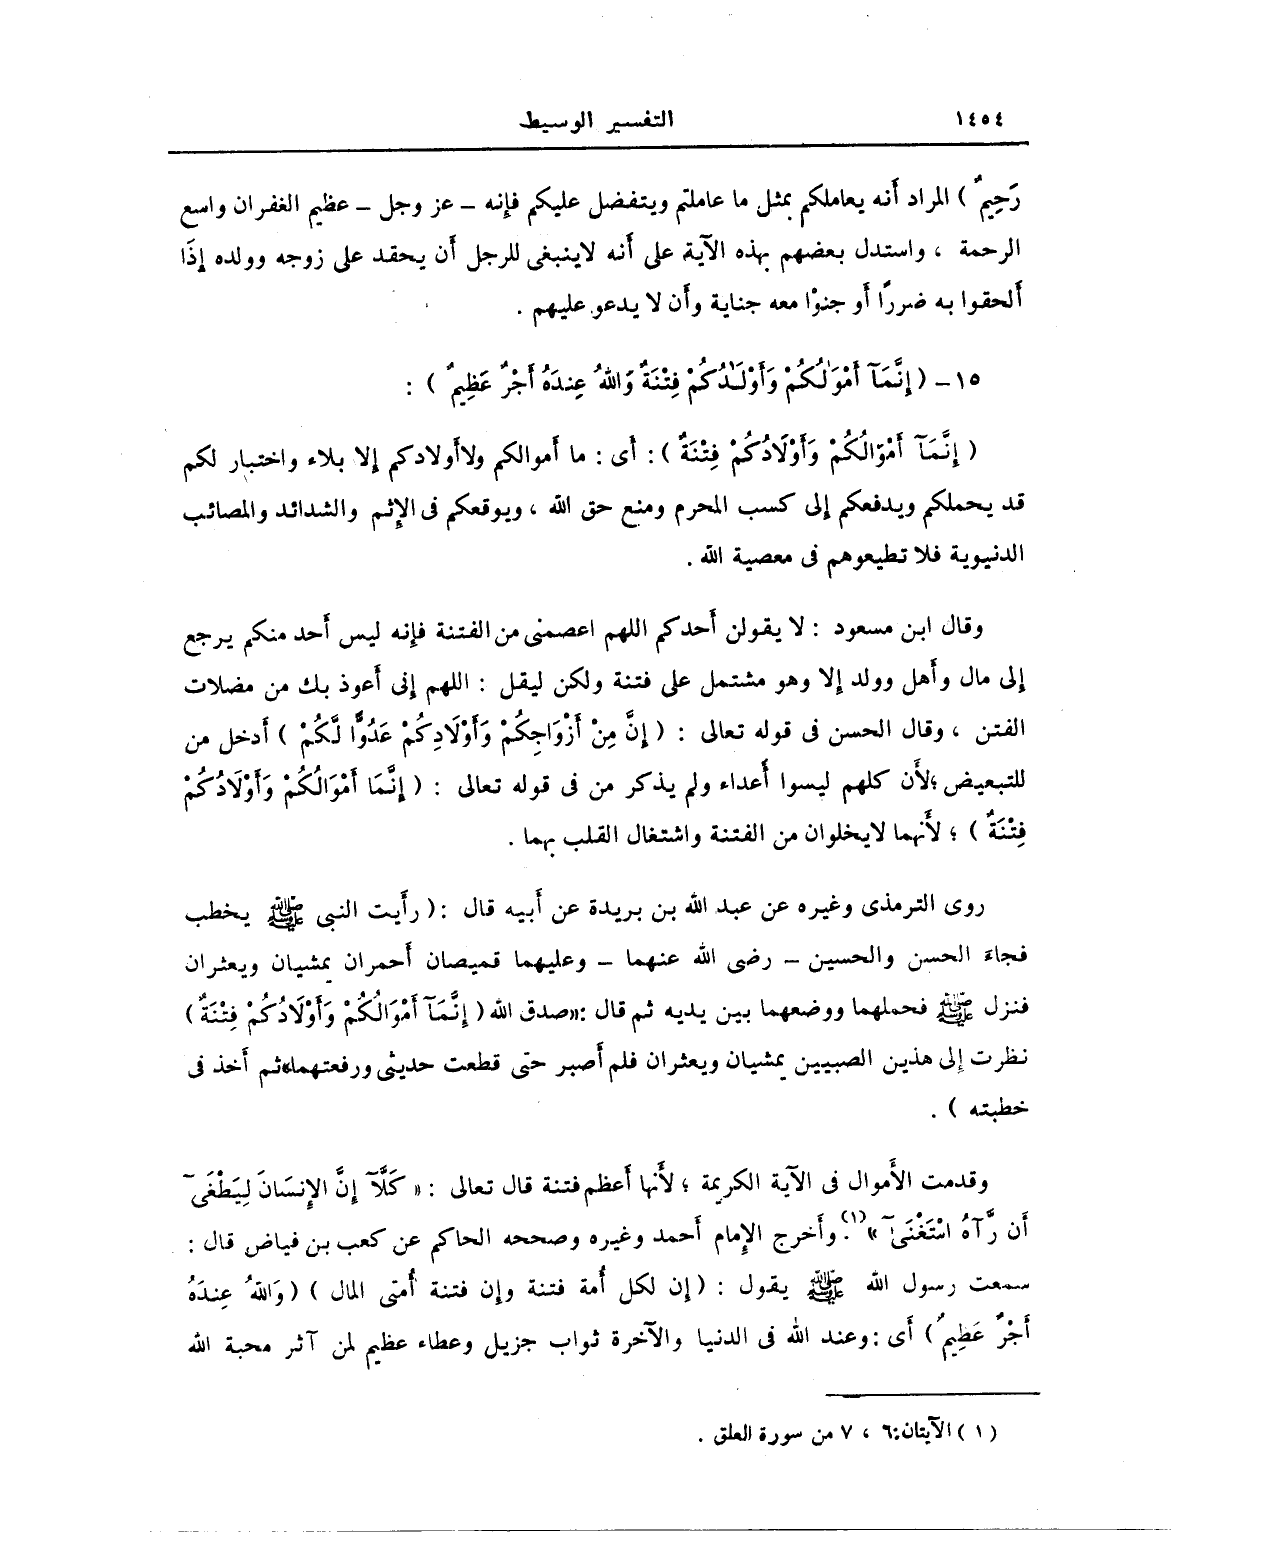 ١٤٥٤ التفسير الوسيط
رَحِيمٌ ) المراد أَنه يعاملكم بمثل ما عاملتم ويتفضل عليكم فإنه – عز وجل – عظيم الغفران واسع
الرحمة ، واستدل بعضهم بهذه الآية على أَنه لاينبغى للرجل أَن يحقد على زوجه وولده إِذَا
أَلحقوا به ضررًا أَو جنوْا معه جناية وأَن لا يدعو عليهم .
١٥ – ( إِنَّمَآ أَمْوَٰلُكُمْ وَأَوْلَـٰدُكُمْ فِتْنَةٌ وَٱللهُ عِندَهُ أَجْرٌ عَظِيمٌ ) :
( إِنَّمَآ أَمْوَالُكُمْ وَأَوْلَادُكُمْ فِتْنَةٌ ) : أَى : ما أموالكم ولاأولادكم إلا بلاء واختبار لكم
قد يحملكم ويدفعكم إِلى كسب المحرم ومنع حق الله ، ويوقعكم فى الإِثم والشدائد والمصائب
الدنيوية فلا تطيعوهم فى معصية الله .
وقال ابن مسعود : لا يقولن أَحدكم اللهم اعصمنى من الفتنة فإِنه ليس أَحد منكم يرجع
إِلى مال وأَهل وولد إِلا وهو مشتمل على فتنة ولكن ليقل : اللهم إِنى أَعوذ بك من مضلات
الفتن ، وقال الحسن فى قوله تعالى : ( إِنَّ مِنْ أَزْوَاجِكُمْ وَأَوْلَادِكُمْ عَدُوًّا لَّكُمْ ) أَدخل من
للتبعيض ؛لأَن كلهم ليسوا أَعداء ولم يذكر من فى قوله تعالى : ( إِنَّمَا أَمْوَالُكُمْ وَأَوْلَادُكُمْ
فِتْنَةٌ ) ؛ لأَنهما لايخلوان من الفتنة واشتغال القلب بهما .
روى الترمذى وغيره عن عبد الله بن بريدة عن أَبيه قال :( رأَيت النبى ﷺ يخطب
فجاءَ الحسن والحسين – رضى الله عنهما – وعليهما قميصان أَحمران يمشيان ويعثران
فنزل ﷺ فحملهما ووضعهما بين يديه ثم قال :«صدق الله ( إِنَّمَآ أَمْوَالُكُمْ وَأَوْلَادُكُمْ فِتْنَةٌ )
نظرت إِلى هذين الصبيين يمشيان ويعثران فلم أَصبر حتى قطعت حديثى ورفعتهما»ثم أَخذ فى
خطبته ) .
وقدمت الأَموال فى الآية الكريمة ؛ لأَنها أَعظم فتنة قال تعالى : « كَلَّآ إِنَّ الإِنسَانَ لَيَطْغَىٰٓ
أَن رَّآهُ اسْتَغْنَىٰٓ »(١). وأَخرج الإِمام أَحمد وغيره وصححه الحاكم عن كعب بن فياض قال :
سمعت رسول الله ﷺ يقول : ( إِن لكل أُمة فتنة وإِن فتنة أُمتى المال ) ( وَاللهُ عِندَهُ
أَجْرٌ عَظِيمٌ ) أَى : وعند الله فى الدنيا والآخرة ثواب جزيل وعطاء عظيم لمن آثر محبة الله
( ١ ) الآيتان:٦ ، ٧ من سورة العلق .